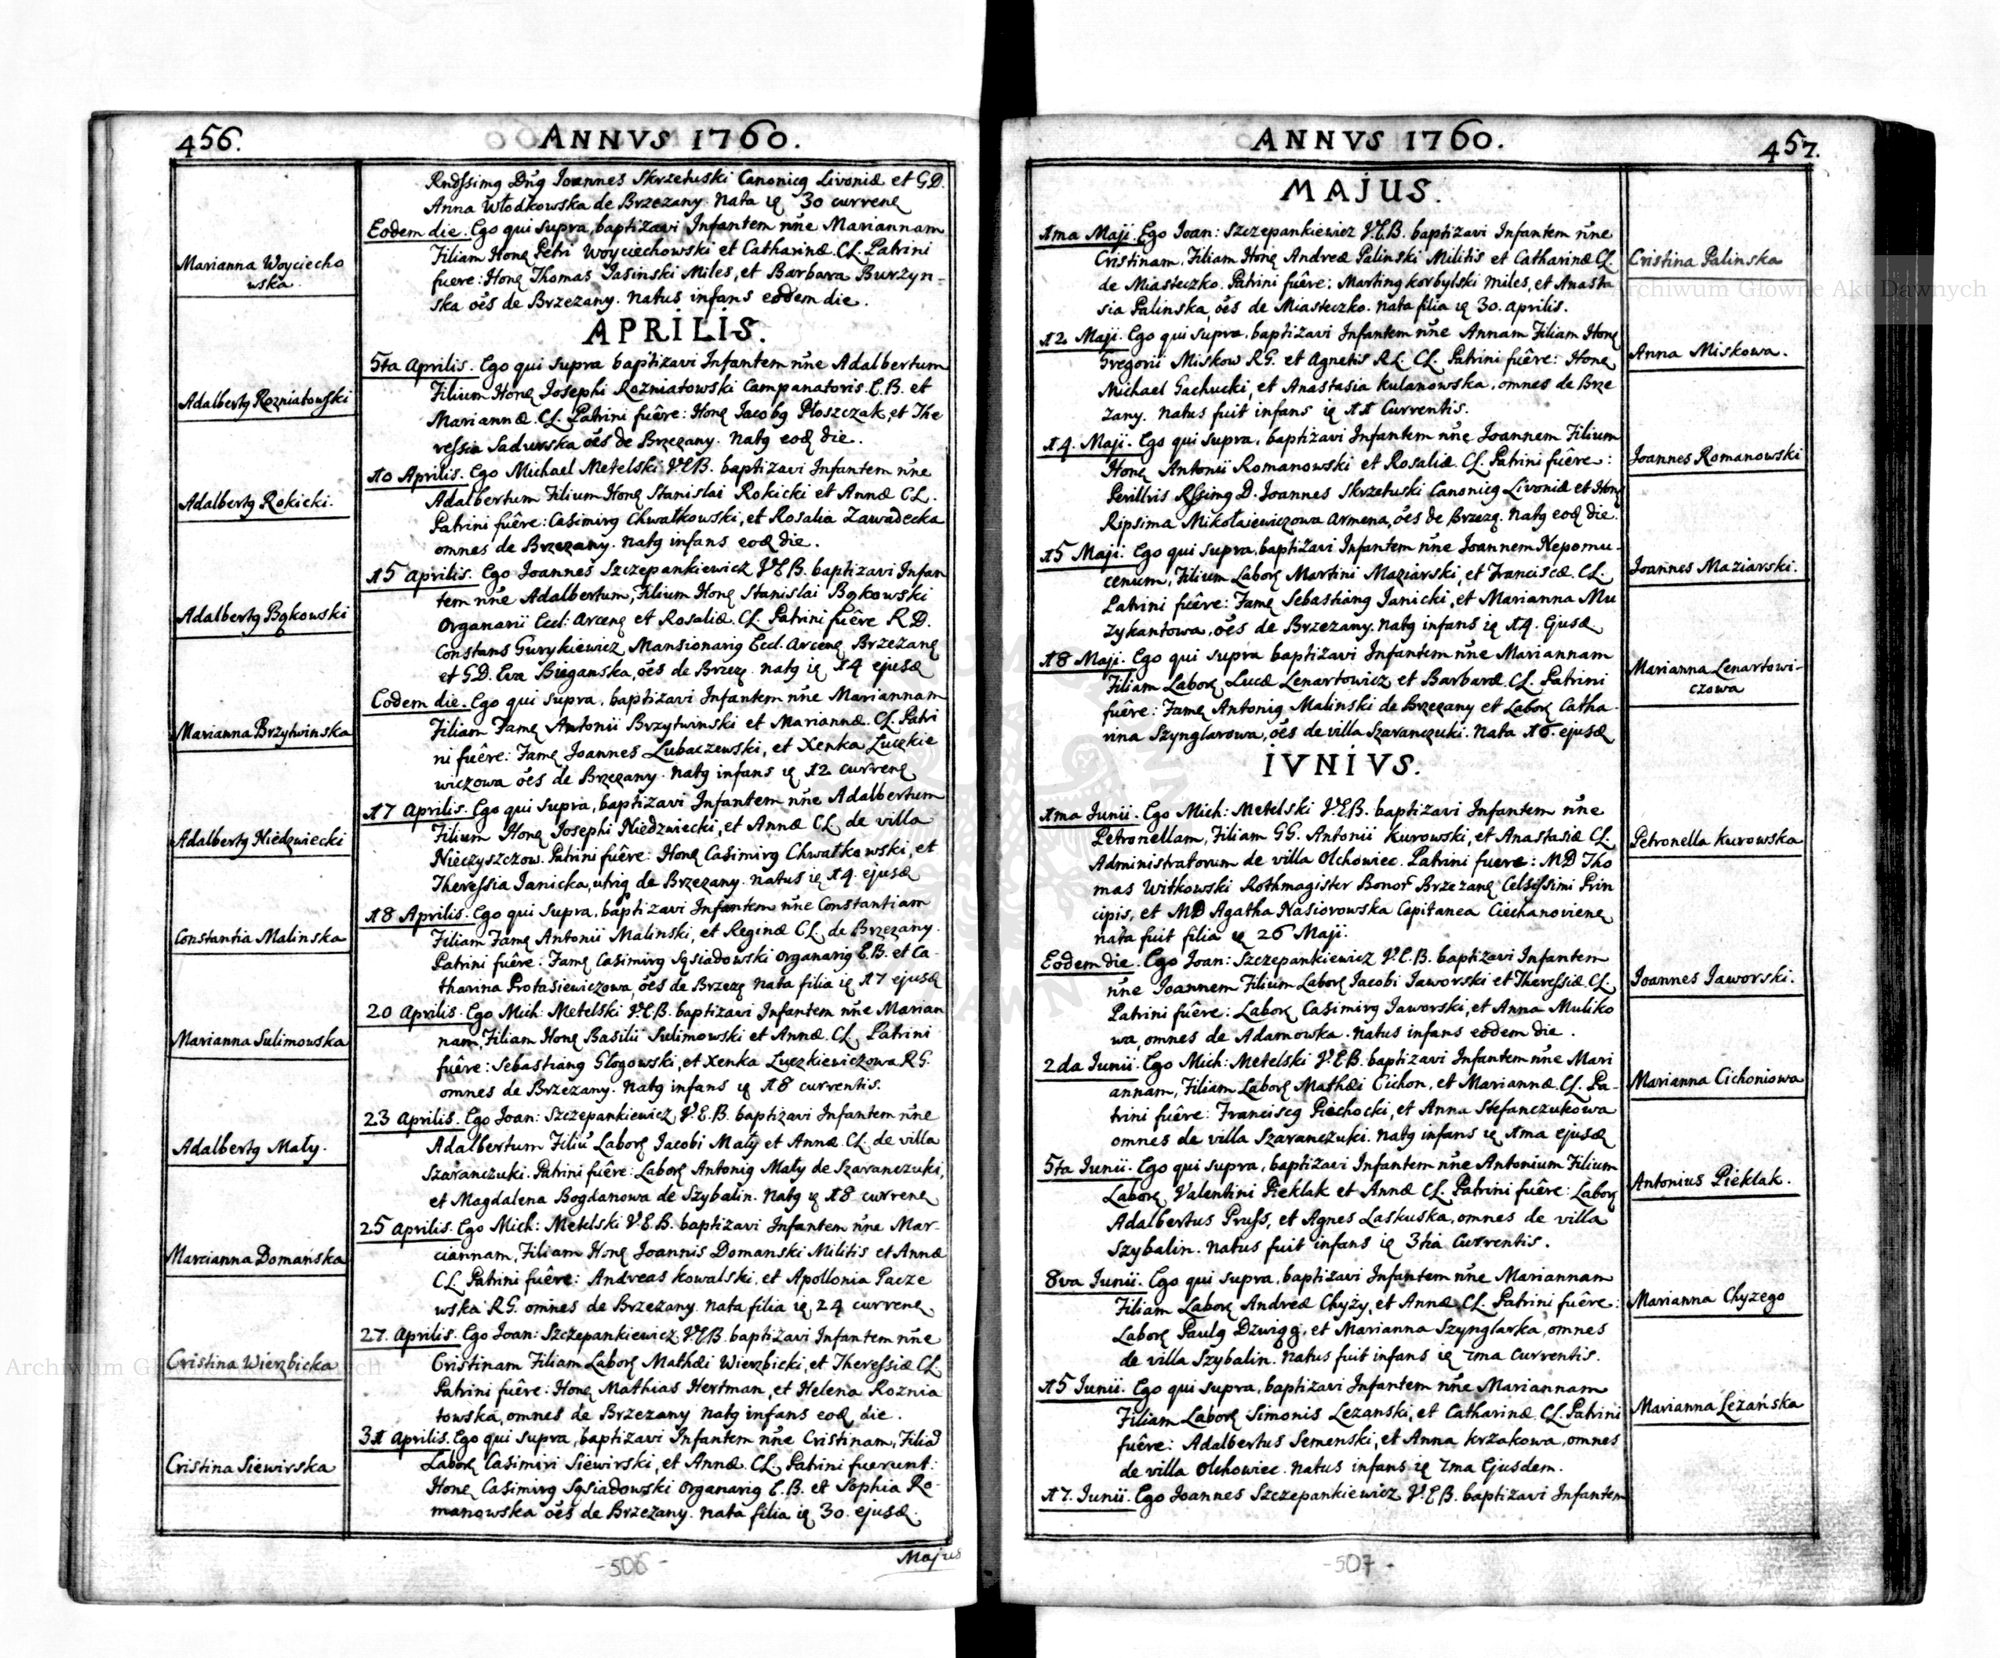 456.
ANNVS 1760.
Rndssimq Dnq Joannes Skrzetuski Canonicq Livoniæ et G.D.
Anna Włodkowska de Brzezany. Nata ię 30 currenę
Marianna Woyciecho
wska
Eodem die. Ego qui supra, baptizavi Infantem nñe Mariannam
Filiam Honę Petri Woyciechowski et Catharinæ CL. Patrini
fuere: Honę Thomas Jasinski Miles, et Barbara Burzyn=
ska oẽs de Brzezany. Natus infans eodem die.
APRILIS.
Adalbertq Rozniatowski
5ta Aprilis. Ego qui supra baptizavi Infantem nñe Adalbertum
Filium Honę Josephi Rozniatowski Campanatoris E.B. et
Mariannæ CL. Patrini fuêre: Honę Jacobq Płoszczak, et The
ressia Sadurska oẽs de Brzezany. Natq eođ die.
Adalbertq Rokicki.
10 Aprilis. Ego Michael Metelski V.E.B. baptizavi Infantem nñe
Adalbertum Filium Honę Stanislai Rokicki et Annæ CL.
Patrini fuêre: Casimirq Chwałkowski, et Rosalia Zawadecka
omnes de Brzezany. Natq infans eođ die.
Adalbertq Bąkowski
15 Aprilis. Ego Joannes Szczepankiewicz V.E.B. baptizavi Infan
tem nñe Adalbertum, Filium Honę Stanislai Bąkowski
Organarii Eccl: Arcenę et Rosaliæ CL. Patrini fuêre R.D.
Constans Gurykiewicz Mansionariq Eccl. Arcenę Brzezanę
et G.D. Eva Bieganska, oẽs de Brzeę. Natq ię 14 ejusđ
Marianna Brzytwinska
Eodem die. Ego qui supra, baptizavi Infantem nñe Mariannam
Filiam Famę Antonii Brzytwinski et Mariannæ CL. Patri
ni fuêre: Famę Joannes Lubaczewski, et Xenka Luczkie
wiczowa oẽs de Brzezany. Natq infans ię 12 currenę
Adalbertq Niedzwiecki
17 Aprilis. Ego qui supra, baptizavi Infantem nñe Adalbertum
Filium Honę Josephi Niedzwiecki, et Annæ CL. de villa
Nieczyszczow. Patrini fuêre: Honę Casimirq Chwałkowski, et
Theressia Janicka, utriq de Brzezany. Natus ię 14 ejusđ
Constantia Malinska
18 Aprilis. Ego qui supra, baptizavi Infantem nñe Constantiam
Filiam Famę Antonii Malinski, et Reginæ CL. de Brzezany.
Patrini fuêre: Famę Casimirq Sąsiadowski Organariq E.B. et Ca-
tharina Protasiewiczowa, oẽs de Brzezę Nata filia ię 17 ejusđ
Marianna Sulimowska
20 Aprilis. Ego Mich: Metelski V.E.B. baptizavi Infantem nñe Marian
nam, Filiam Honę Basilii Sulimowski et Annæ CL. Patrini
fuêre: Sebastianq Głogowski, et Xenka Luczkiewiczowa R.G.
omnes de Brzezany. Natq infans ię 18 currentis.
Adalbertq Mały.
23 Aprilis. Ego Joan: Szczepankiewicz V.E.B. baptizavi Infantem nñe
Adalbertum Filiũ Laborę Jacobi Mały et Annæ CL. de villa
Szaranczuki. Patrini fuêre: Laborę Antoniq Mały de Szaranczuki,
et Magdalena Bogdanowa de Szybalin. Natq ię 18 currenę
Marcianna Domańska
25 Aprilis. Ego Mich: Metelski V.E.B. baptizavi Infantem nñe Mar-
ciannam, Filiam Honę Joannis Domanski Militis et Annæ
CL. Patrini fuêre: Andreas Kowalski, et Apollonia Pacze
wska R.G. omnes de Brzezany. Nata filia ię 24 currenę
Cristina Wierzbicka
27. Aprilis. Ego Joan: Szczepankiewicz V.E.B. baptizavi Infantem nñe
Cristinam Filiam Laborę Mathæi Wierzbicki, et Theressiæ CL.
Patrini fuêre: Honę Mathias Hertman, et Helena Roznia
towska, omnes de Brzezany Natq infans eođ die.
Cristina Siewirska
31 Aprilis. Ego qui supra, baptizavi Infantem nñe Cristinam, Filiã
Laborę Casimiri Siewirski, et Annæ CL. Patrini fuerunt:
Honę Casimirq Sąsiadowski Organariq E.B. et Sophia Ro-
manowska oẽs de Brzezany. Nata filia ię 30. ejusđ.
Majus
-506-
ANNVS 1760.
457.
MAJUS.
1ma Maji. Ego Joan: Szczepankiewicz V.E.B. baptizavi Infantem nñe
Cristinam, Filiam Honę Andreæ Palinski Militis et Catharinæ CL
de Miasteczko. Patrini fuêre: Martinq Korbylski Miles, et Anasta
sia Palinska, oẽs de Miasteczko. Nata filia ię 30. Aprilis.
Cristina Palinska
12 Maji. Ego qui supra, baptizavi Infantem nñe Annam Filiam Honę
Gregorii Miskow R.G. et Agnetis R.L. CL. Patrini fuêre: Honę
Michael Gachucki, et Anastasia Kulanowska, omnes de Brze
zany. Natus fuit infans ię 11 Currentis.
Anna Miskowa.
14. Maji. Ego qui supra, baptizavi Infantem nñe Joannem Filium
Honę Antonii Romanowski et Rosaliæ CL. Patrini fuêre:
Perillris Rssimq D. Joannes Skrzetuski Canonicq Livoniæ et Honę
Ripsima Mikołaiewiczowa Armena, oẽs de Brzezę. Natq eođ die.
Joannes Romanowski
15 Maji. Ego qui supra, baptizavi Infantem nñe Joannem Nepomu-
cenum, Filium Laborę Martini Maziarski, et Franciscæ CL.
Patrini fuêre: Famę Sebastianq Janicki, et Marianna Mu
zykantowa, oẽs de Brzezany. Natq infans ię 14. Ejusđ
Joannes Maziarski.
18 Maji. Ego qui supra baptizavi Infantem nñe Mariannam
Filiam Laborę Lucæ Lenartowicz et Barbaræ CL. Patrini
fuêre: Famę Antoniq Malinski de Brzezany et Laborę Catha-
rina Szynglarowa, oẽs de villa Szaranczuki. Nata 16. ejusđ
Marianna Lenartowi-
czowa
IVNIVS.
1ma Junii. Ego Mich: Metelski V.E.B. baptizavi Infantem nñe
Petronellam, Filiam GG. Antonii Kurowski, et Anastasiæ CL.
Administratorum de villa Olchowiec. Patrini fuere: MD Tho
mas Witkowski Rothmagister Bonor Brzezanę Celsissimi Prin
cipis, et MD Agatha Nasiorowska Capitanea Ciechanovienę
nata fuit filia ię 26 Maji.
Petronella Kurowska
Eodem die. Ego Joan: Szczepankiewicz V.E.B. baptizavi Infantem
nñe Joannem Filium Laborę Jacobi Jaworski et Theressiæ CL.
Patrini fuêre: Laborę Casimirq Jaworski, et Anna Muliko
wa, omnes de Adamowska. Natus infans eodem die.
Joannes Jaworski.
2da Junii. Ego Mich: Metelski V.E.B. baptizavi Infantem nñe Mari
annam, Filiam Laborę Mathæi Cichon, et Mariannæ CL. Pa-
trini fuêre: Franciscq Piechocki, et Anna Stefanczukowa
omnes de villa Szaranczuki. Natq infans ię 1ma ejusđ
Marianna Cichoniowa
5ta Junii. Ego qui supra, baptizavi Infantem nñe Antonium Filium
Laborę Valentini Pieklak et Annæ CL. Patrini fuêre: Laborę
Adalbertus Pruss, et Agnes Laskuska, omnes de villa
Szybalin. Natus fuit infans ię 3tia Currentis.
Antonius Pieklak.
8va Junii. Ego qui supra, baptizavi Infantem nñe Mariannam
Filiam Laborę Andreæ Chyży, et Annæ CL. Patrini fuêre:
Laborę Paulq Dzwigq, et Marianna Szynglarka, omnes
de villa Szybalin. Natus fuit infans ię 7ma Currentis.
Marianna Chyzego
15 Junii. Ego qui supra, baptizavi Infantem nñe Mariannam
Filiam Laborę Simonis Lezanski, et Catharinæ CL. Patrini
fuêre: Adalbertus Semenski, et Anna Krzakowa, omnes
de villa Olchowiec. Natus infans ię 7ma Ejusdem.
Marianna Leżańska
17. Junii. Ego Joannes Szczepankiewicz V.E.B. baptizavi Infantem
-507-
Archiwum Główne Akt Dawnych
Archiwum Główne Akt Dawnych